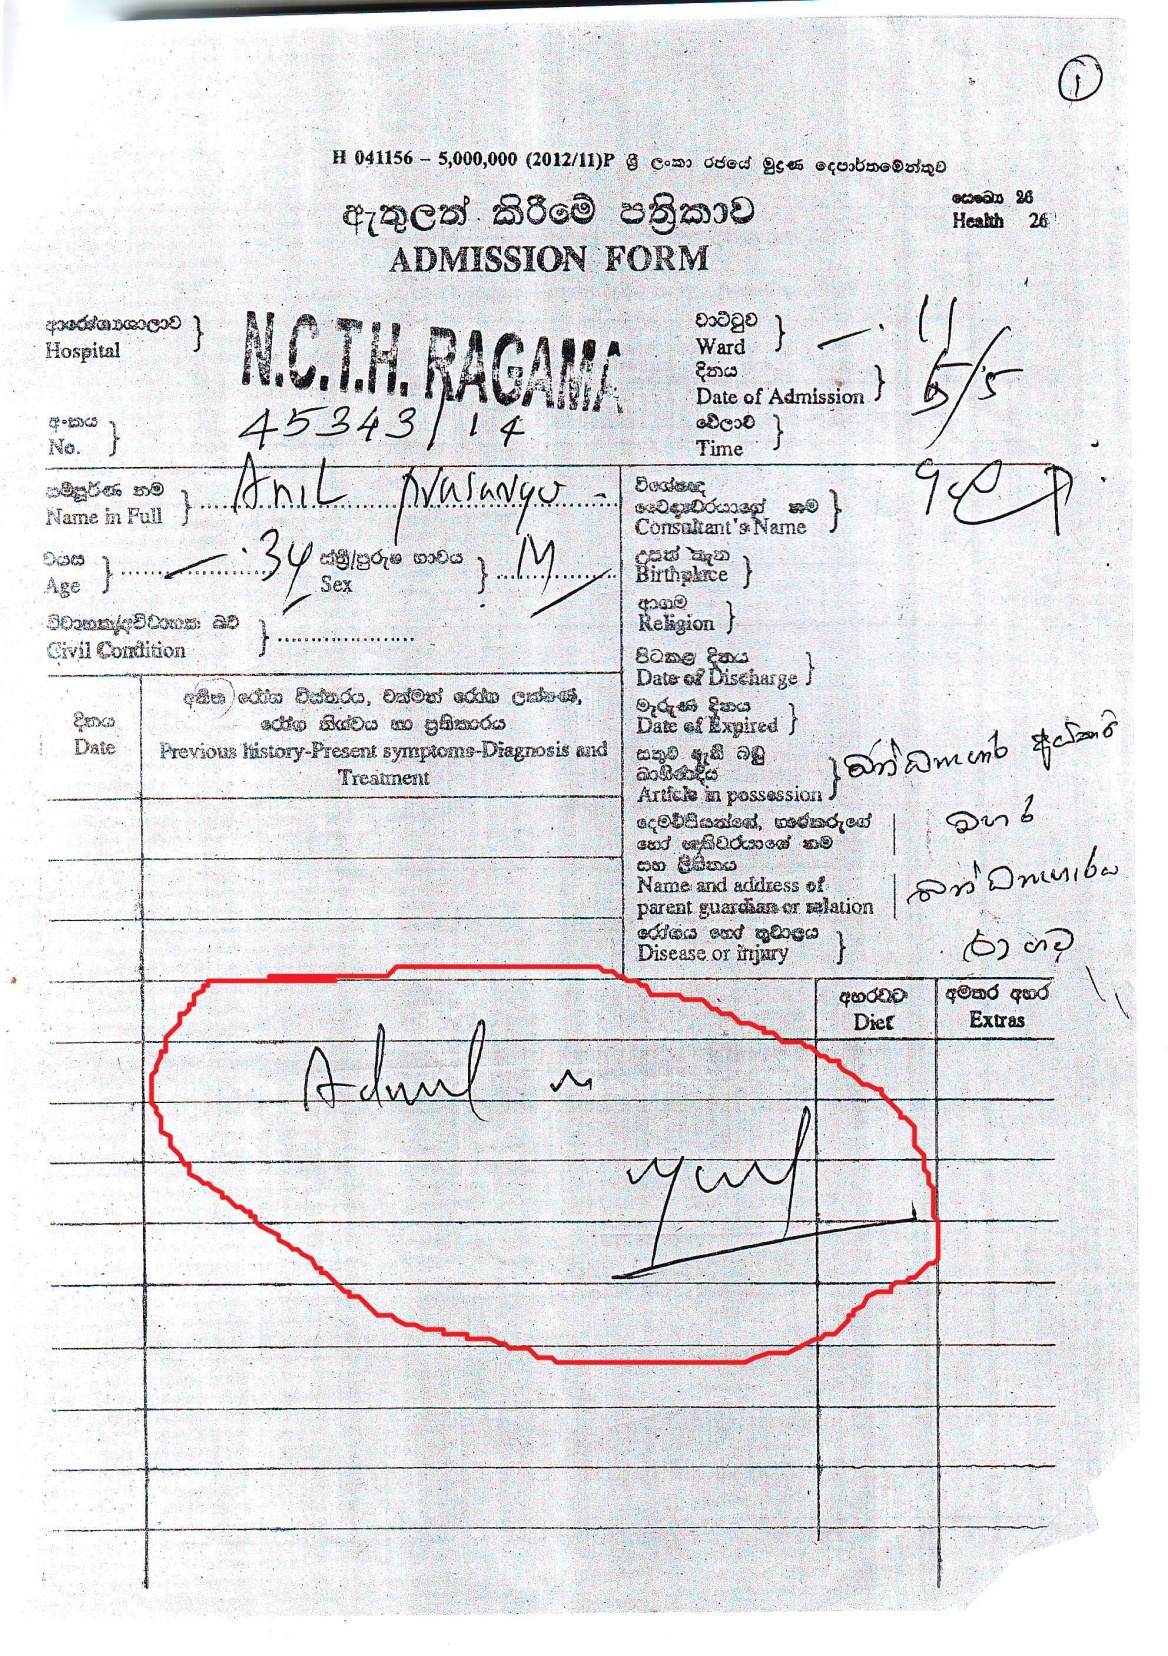 1
H 041156 – 5,000,000 (2012/11)P ශ්‍රී ලංකා රජයේ මුද්‍රණ දෙපාර්තමේන්තුව
සෞඛ්‍ය 26
Health 26
ඇතුලත් කිරීමේ පත්‍රිකාව
ADMISSION FORM
ආරෝග්‍යශාලාව
Hospital
N.C.T.H. RAGAMA
වාට්ටුව
Ward
11
දිනය
Date of Admission
5/5
අංකය
No.
45343/14
වේලාව
Time
සම්පූර්ණ නම
Name in Full
Anil
වයස
Age
34
ස්ත්‍රී/පුරුෂ භාවය
Sex
M
විවාහක/අවිවාහක බව
Civil Condition
විශේෂඥ
වෛද්‍යවරයාගේ නම
Consultant's Name
උපත් තැන
Birthplace
ආගම
Religion
පිටකළ දිනය
Date of Discharge
මැරුණ දිනය
Date of Expired
සතුව ඇති බඩු
Article in possession
බන්ධනාගාර
දෙමව්පියන්ගේ, භාරකරුගේ
හෝ ඥාතිවරයාගේ නම
සහ ලිපිනය
Name and address of
parent guardian or relation
බන්ධනාගාරය
රෝගය හෝ තුවාලය
Disease or injury
දිනය
Date
අතීත රෝග විස්තරය, වත්මන් රෝග ලක්ෂණ,
රෝග නිශ්චය හා ප්‍රතිකාරය
Previous history-Present symptoms-Diagnosis and
Treatment
අහරවට
Diet
අමතර අහර
Extras